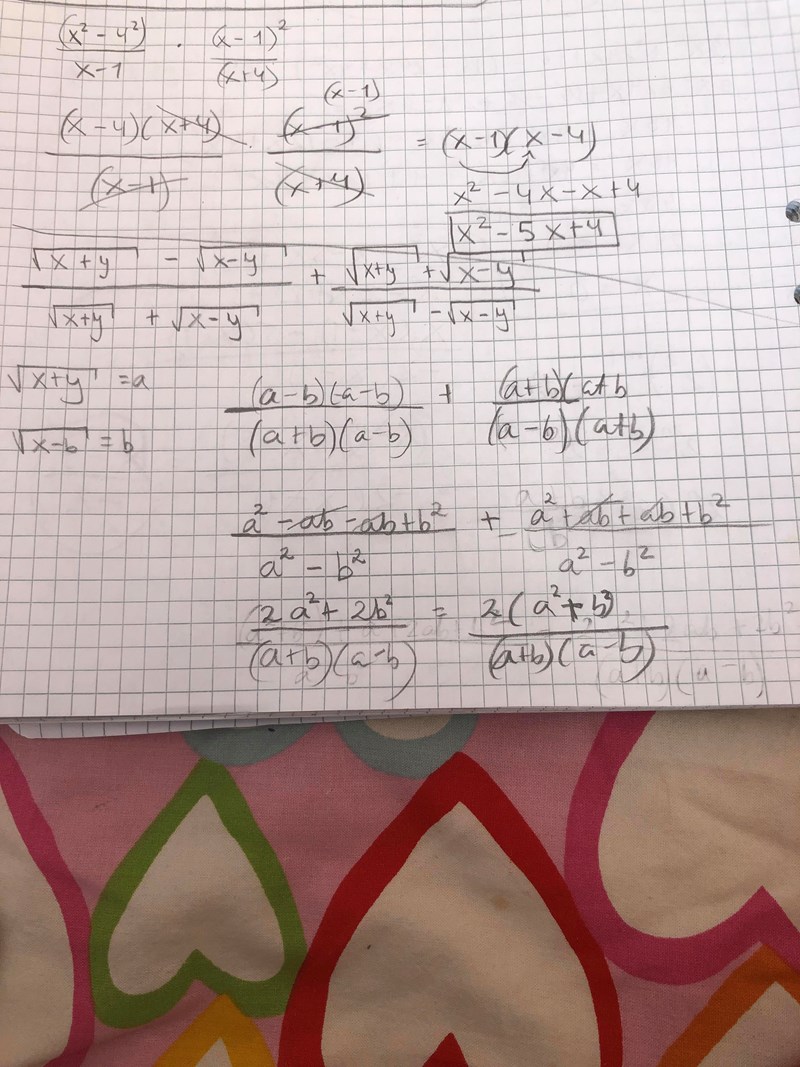 (x² - 4²)/(x-1) · (x-1)²/(x+4)
(x-4)(x+4)/(x-1) · (x-1)²/(x+4) (x-1) = (x-1)(x-4)
x² - 4x - x + 4
x² - 5x + 4
(√(x+y) - √(x-y))/(√(x+y) + √(x-y)) + (√(x+y) + √(x-y))/(√(x+y) - √(x-y))
√(x+y) = a (a-b)(a-b)/(a+b)(a-b) + (a+b)(a+b/(a-b)(a+b)
√(x-b) = b
(a² - ab - ab + b²)/(a² - b²) + (a² + ab + ab + b²)/(a² - b²)
(2a² + 2b²)/(a+b)(a-b) = 2(a² + b²)/(a+b)(a-b)